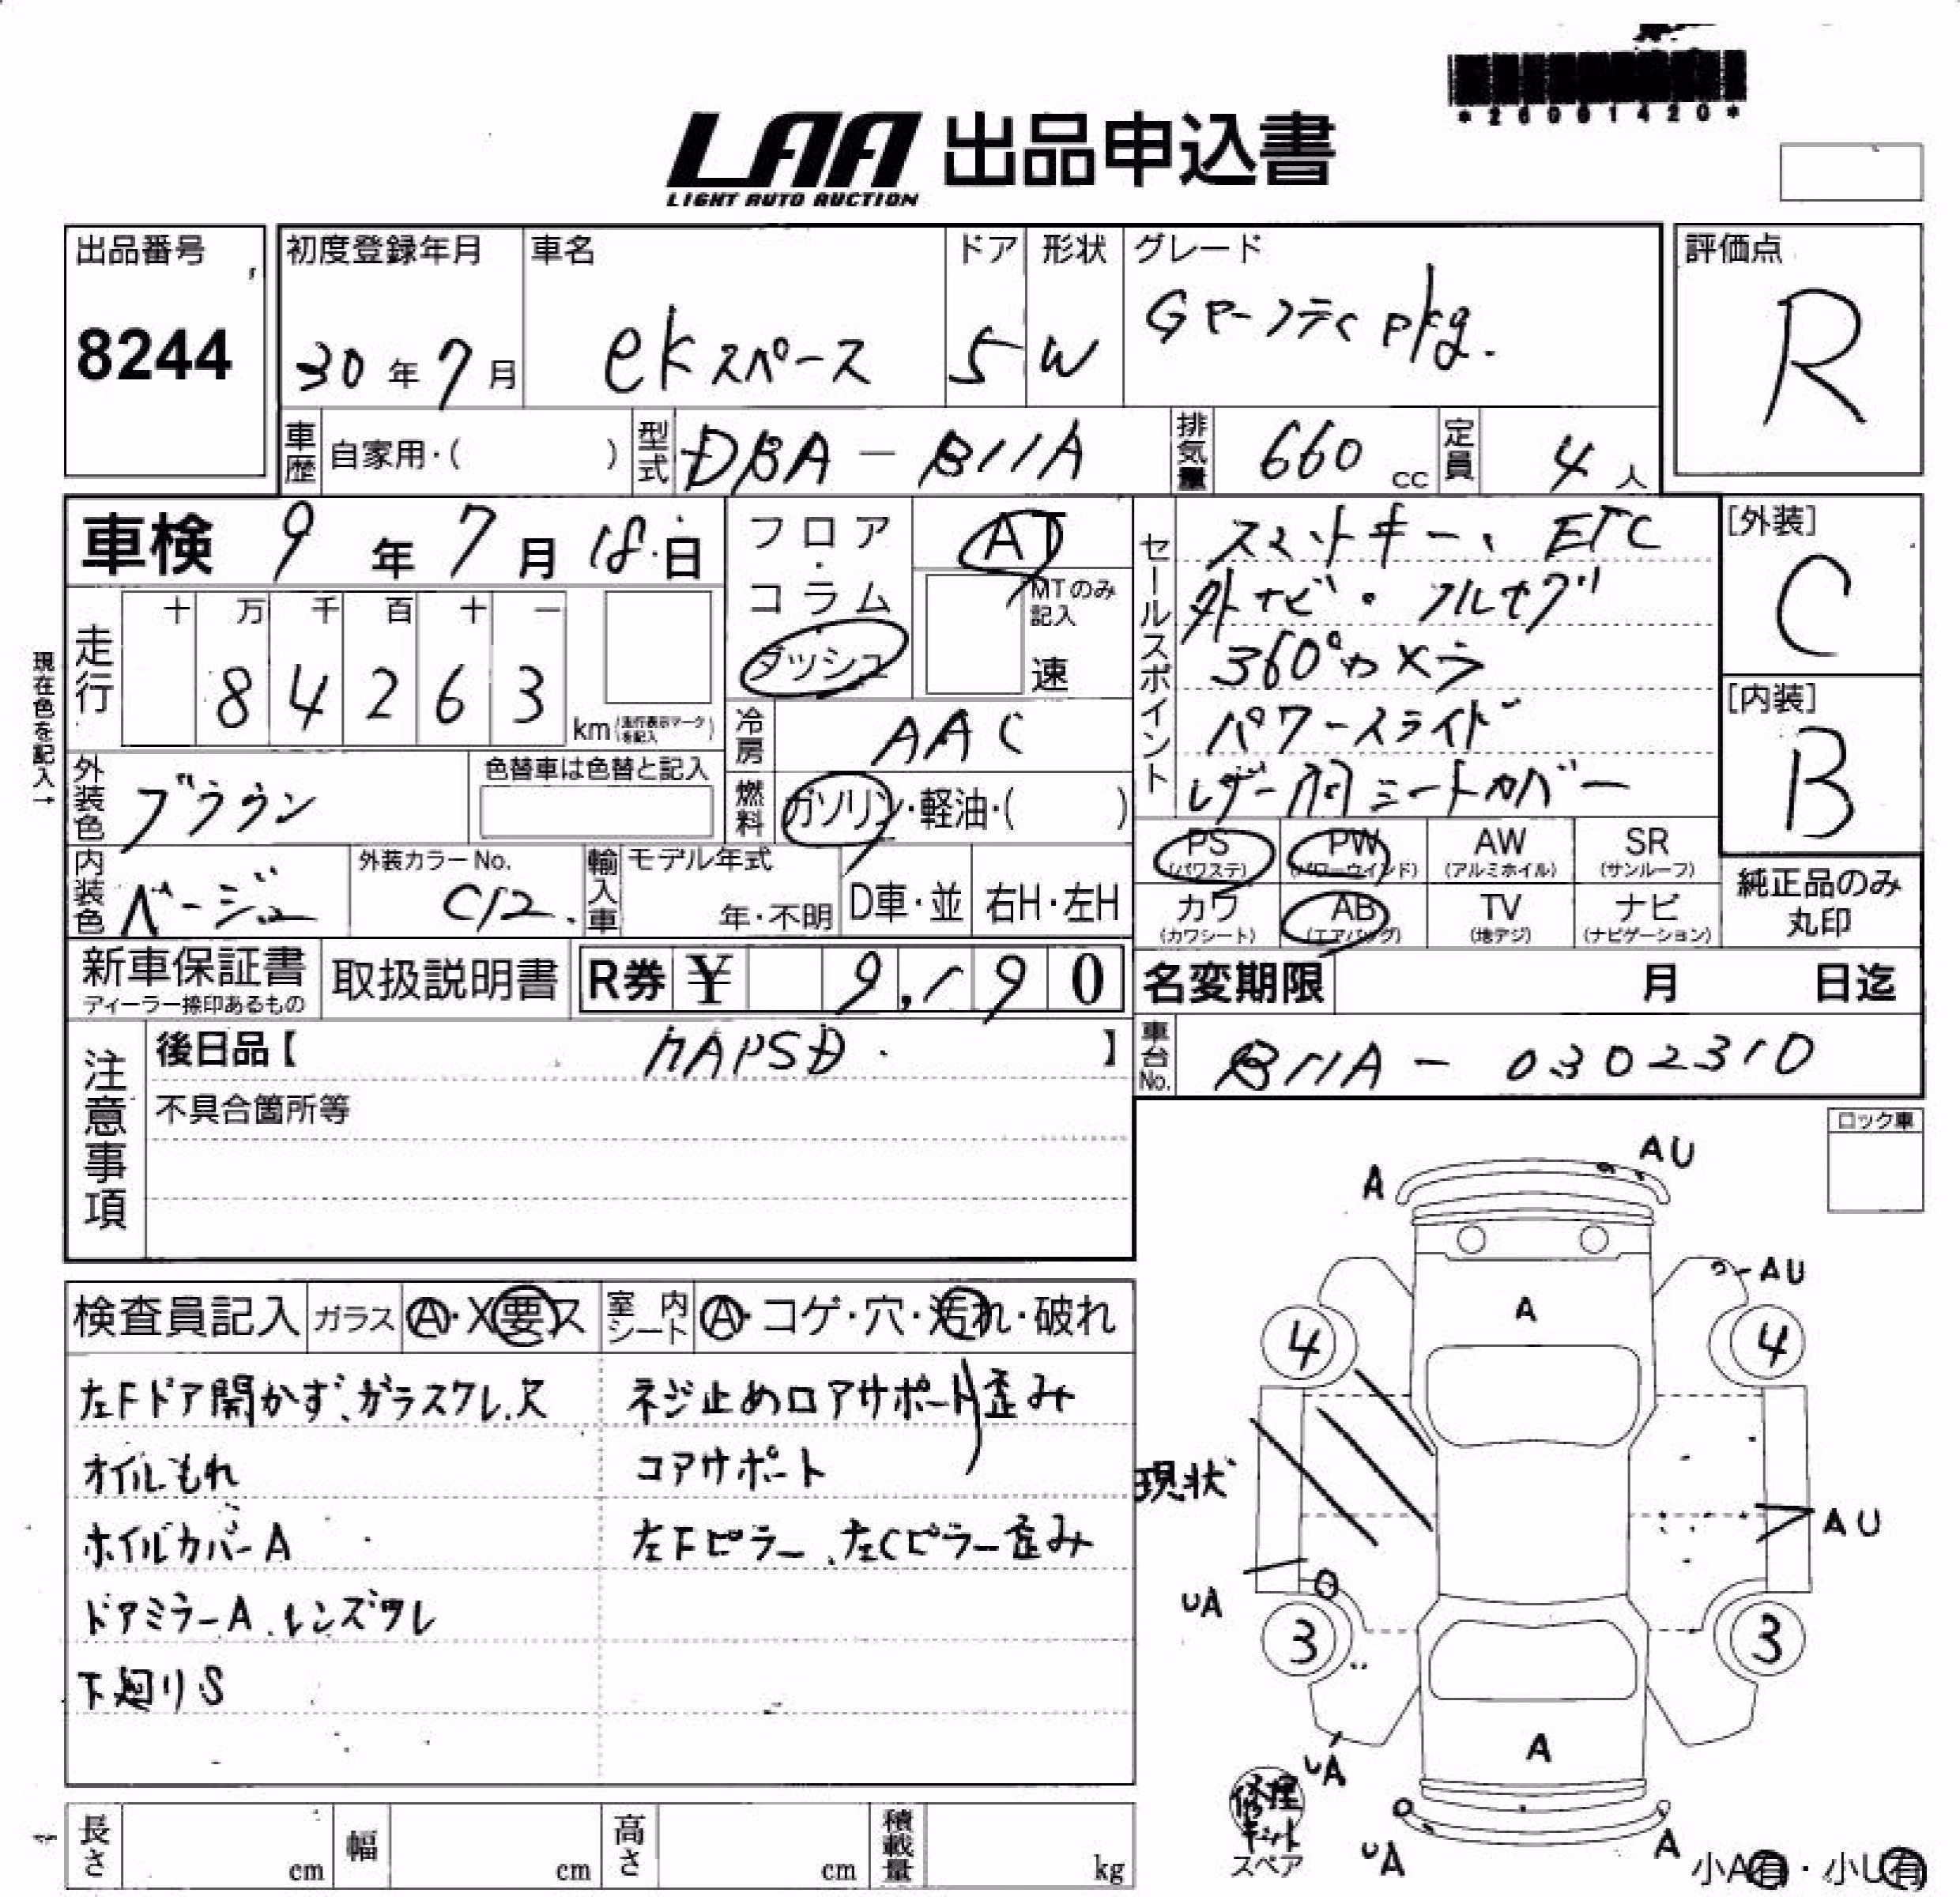 *26091420*
LAA 出品申込書
LIGHT AUTO AUCTION
出品番号 8244
初度登録年月 30年7月
車名 eKスペース
ドア 5
形状 W
グレード G セーフティ pkg.
評価点 R
車歴 自家用・( )
型式 DBA-B11A
排気量 660 cc
定員 4人
車検 9年7月18日
フロア・コラム ダッシュ
AT
MTのみ記入 速
現在色を記入→
走行 十万千百十一
84263 km (走行表示マークを記入)
冷房 AAC
燃料 ガソリン・軽油・( )
外装色 ブラウン
色替車は色替と記入
内装色 ベージュ
外装カラーNo. C12.
輸入車 モデル年式 年・不明 D車・並 右H・左H
セールスポイント
スマートキー、ETC
外ナビ・フルセグ
360°カメラ
パワースライド
レザー調シートカバー
[外装] C
[内装] B
PS (パワステ) PW (パワーウインド) AW (アルミホイル) SR (サンルーフ)
カワ (カワシート) AB (エアバッグ) TV (地デジ) ナビ (ナビゲーション)
純正品のみ丸印
新車保証書 ディーラー捺印あるもの
取扱説明書
R券 ¥ 9,190
名変期限 月 日迄
注意事項
後日品【 】
不具合箇所等
車台No. B11A-0302310
ロック車
検査員記入 ガラス A・X要ス 室内シート A・コゲ・穴・汚れ・破れ
左Fドア開かず、ガラスワレ、欠
オイルもれ
ホイルカバーA
ドアミラーA、レンズワレ
下廻りS
ネジ止めロアサポート歪み
コアサポート
左Fピラー、左Cピラー歪み
A AU
AU
A
4 4
現状
AU
UA
3 3
UA
A
修理キット
スペア
UA
A
小A有・小U有
長さ cm 幅 cm 高さ cm 積載量 kg